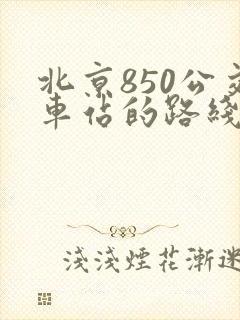 北京850公交
車佔的路綫
淺淺煙花漸迷